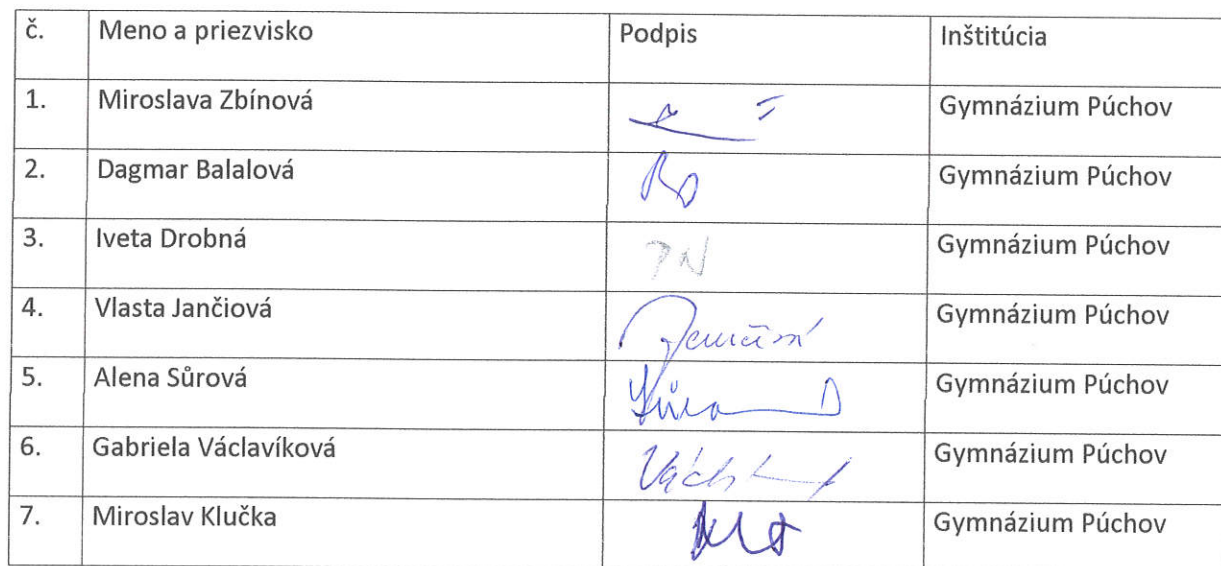 č. Meno a priezvisko Podpis Inštitúcia
1. Miroslava Zbínová Gymnázium Púchov
2. Dagmar Balalová Gymnázium Púchov
3. Iveta Drobná PN Gymnázium Púchov
4. Vlasta Jančiová Gymnázium Púchov
5. Alena Sûrová Gymnázium Púchov
6. Gabriela Václavíková Gymnázium Púchov
7. Miroslav Klučka Gymnázium Púchov